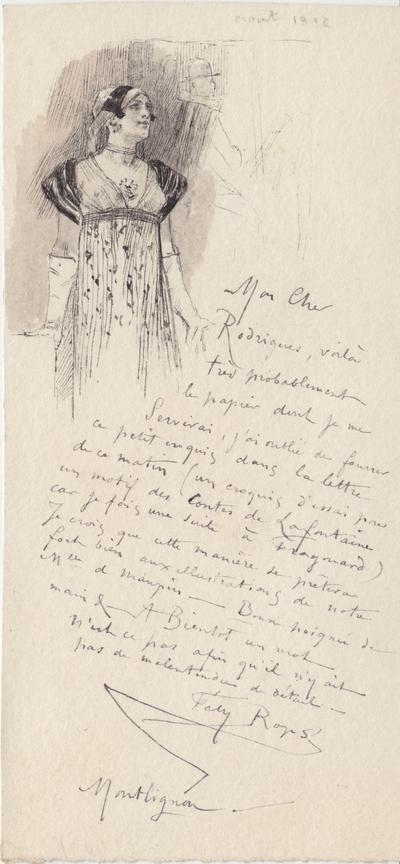 août 18
Mon Cher
Rodrigues, voilà
très probablement
le papier dont je me
Servirai, j'ai oublié de fourrer
ce petit croquis dans la lettre
de ce matin (un croquis d'essai pour
un motif des Contes de Lafontaine
car je fais une suite à Fragonard)
Je crois que cette manière se prêtera
fort bien aux illustrations de notre
Mlle de Maupin — Bonne poignée de
main & A Bientôt un mot
n'est ce pas afin qu'il n'y ait
pas de malentendu de détail —
Fély Rops
Montlignon.